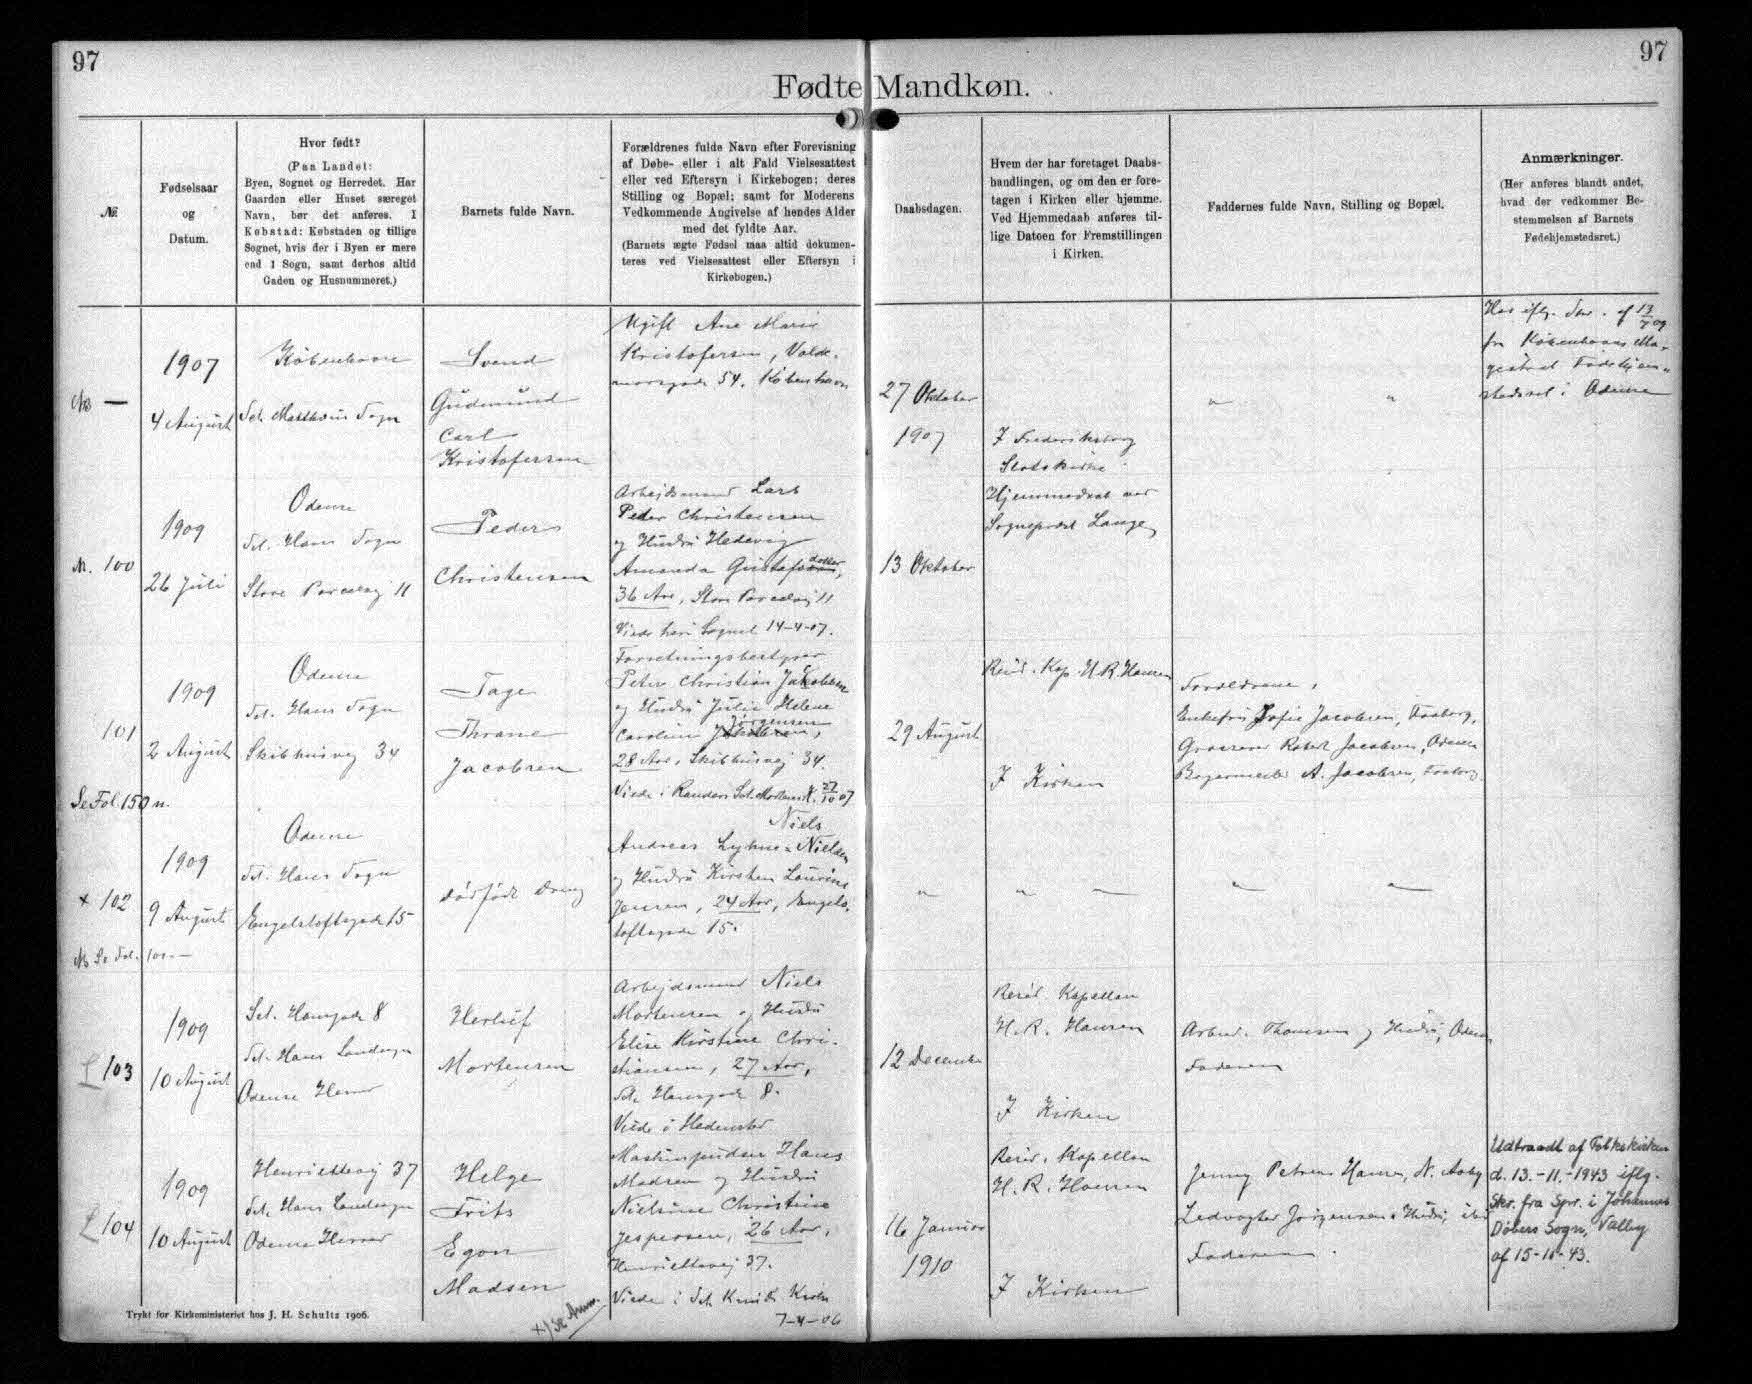 97
97
Fødte Mandkøn.
№
Fødselsaar
og
Datum.
Hvor født?
(Paa Landet:
Byen, Sognet og Herredet. Har
Gaarden eller Huset særeget
Navn, bør det anføres. I
Købstad: Købstaden og tillige
Sognet, hvis der i Byen er mere
end 1 Sogn, samt derhos altid
Gaden og Husnummeret.)
Barnets fulde Navn.
Forældrenes fulde Navn efter Forevisning
af Døbe- eller i alt Fald Vielsesattest
eller ved Eftersyn i Kirkebogen; deres
Stilling og Bopæl; samt for Moderens
Vedkommende Angivelse af hendes Alder
med det fyldte Aar.
(Barnets ægte Fødsel maa altid dokumen-
teres ved Vielsesattest eller Eftersyn i
Kirkebogen.)
Daabsdagen.
Hvem der har foretaget Daabs-
handlingen, og om den er fore-
tagen i Kirken eller hjemme.
Ved Hjemmedaab anføres til-
lige Datoen for Fremstillingen
i Kirken.
Faddernes fulde Navn, Stilling og Bopæl.
Anmærkninger.
(Her anføres blandt andet,
hvad der vedkommer Be-
stemmelsen af Barnets
Fødehjemstedsret.)
—
1907
4 August
København
Sct. Matthæus Sogn
Svend
Gudmund
Carl
Kristofersen
Ugift Ane Marie
Kristofersen, Valde-
marsgade 54. København
27 Oktober
1907
I Frederiksborg
Slotskirke
"
"
Har iflg. Skr. af 13/7 09
fra Københavns Ma-
gistrat Fødehjem-
stedsret i Odense
100
1909
26 Juli
Odense
Sct. Hans Sogn
Store Parcelvej 11
Peder
Christensen
Arbejdsmand Lars
Peder Christensen
og Hustru Hedevig
Amanda Gustafsdotter,
36 Aar, Store Parcelvej 11
Viede her i Sognet 14-4-07.
13 Oktober
Hjemmedøbt ved
Sognepræst Lange
101
Se Fol. 150 n.
1909
2 August
Odense
Sct. Hans Sogn
Skibhusvej 34
Tage
Thrane
Jacobsen
Forretningsbestyrer
Peter Christian Jacobsen
og Hustru Julie Helene
Caroline Jørgensen,
28 Aar, Skibhusvej 34.
Viede i Randers Sct. Mortens K. 27/10 07
29 August
Resid. Kap. H. R. Hansen
I Kirken
Forældrene,
Enkefru Sofie Jacobsen, Faaborg,
Grosserer Robert Jacobsen, Odense
Bagermester A. Jacobsen, Faaborg.
x 102
1909
9 August
Odense
Sct. Hans Sogn
Engelstoftsgade 15
Dødfødt Dreng
Niels
Andreas Lykne Nielsen
og Hustru Kirsten Laurine
Jensen, 24 Aar, Engels-
toftsgade 15.
"
"
—
"
—
Se Fol. 100 —
L 103
1909
10 August
Sct. Hansgade 8
Sct. Hans Landsogn
Odense Herred
Herluf
Mortensen
Arbejdsmand Niels
Mortensen og Hustru
Elise Kirstine Chri-
stiansen, 27 Aar,
Sct. Hansgade 8.
Viede i Hedensted
12 December
Resid. Kapellan
H. R. Hansen
I Kirken
Arbmd. Thomsen og Hustru, Odense
Faderen
L 104
1909
10 August
Henriettevej 37
Sct. Hans Landsogn
Odense Herred
Helge
Frits
Egon
Madsen
Maskinpudser Hans
Madsen og Hustru
Nielsine Christine
Jespersen, 26 Aar,
Henriettevej 37.
Viede i Sct. Knuds Kirke
7-4-06
16 Januar
1910
Resid. Kapellan
H. R. Hansen
I Kirken
Jenny Petrea Hansen, N. Aaby
Ledvogter Jørgensen & Hustru, ibid
Faderen.
Udtraadt af Folkekirken
d. 13.-11.-1943 iflg.
Skr. fra Spr. i Johannes
Døbers Sogn, Valby
af 15-11-43.
Trykt for Kirkeministeriet hos J. H. Schultz 1906.
x/ se Anm.